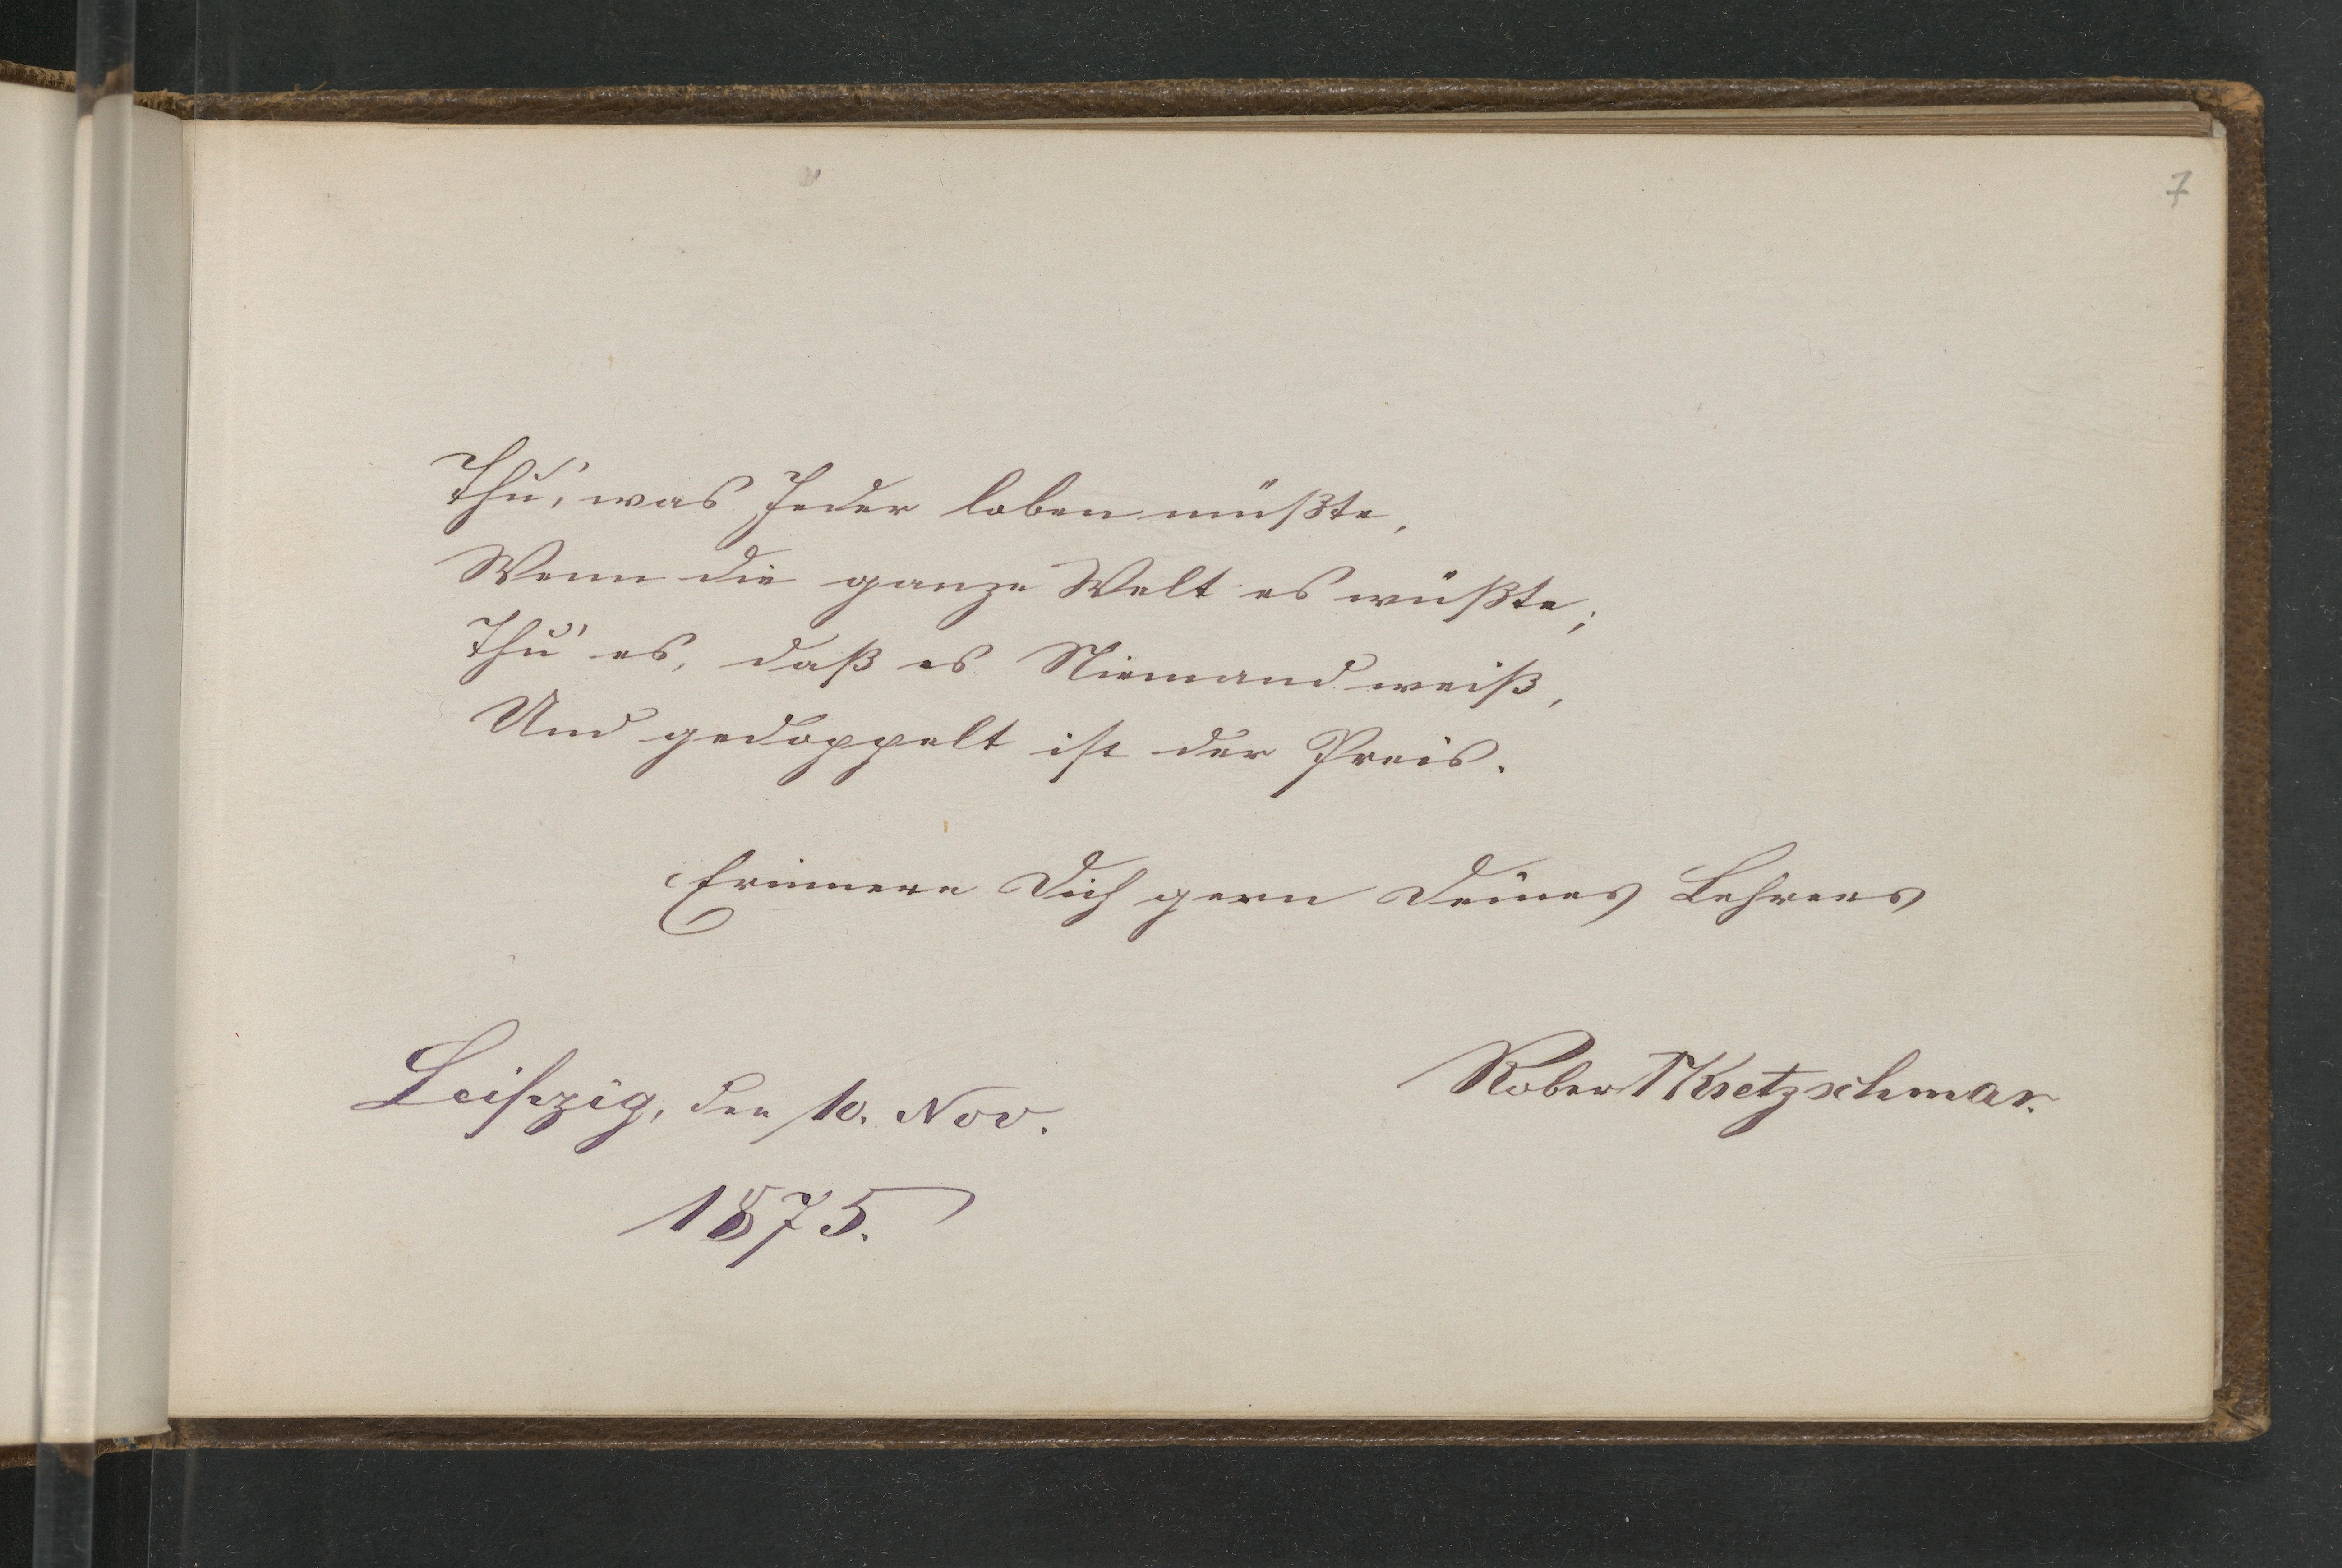 7
Thu', was Jeder loben müßte,
Wenn die ganze Welt es wüßte;
Thu' es, daß es Niemand weiß,
Und gedoppelt ist der Preis.
Erinnere Dich gern Deines Lehrers
Robert Kretzschmar.
Leipzig, den 10. Nov.
1875.